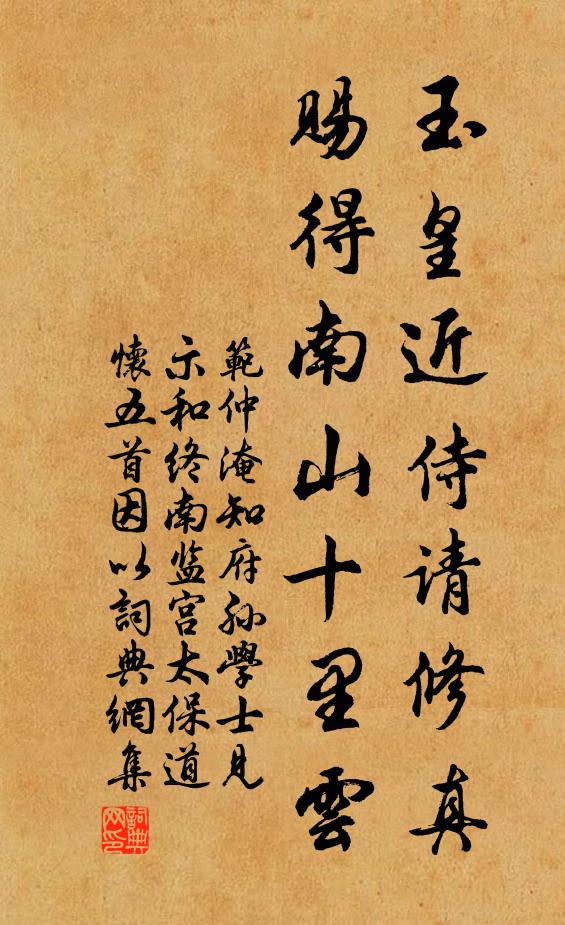 玉皇近侍请修真
賜得南山十里雲
範仲淹知府孙學士見
示和终南监宫太保道
懷五首因以詞典網集
詞典
网印